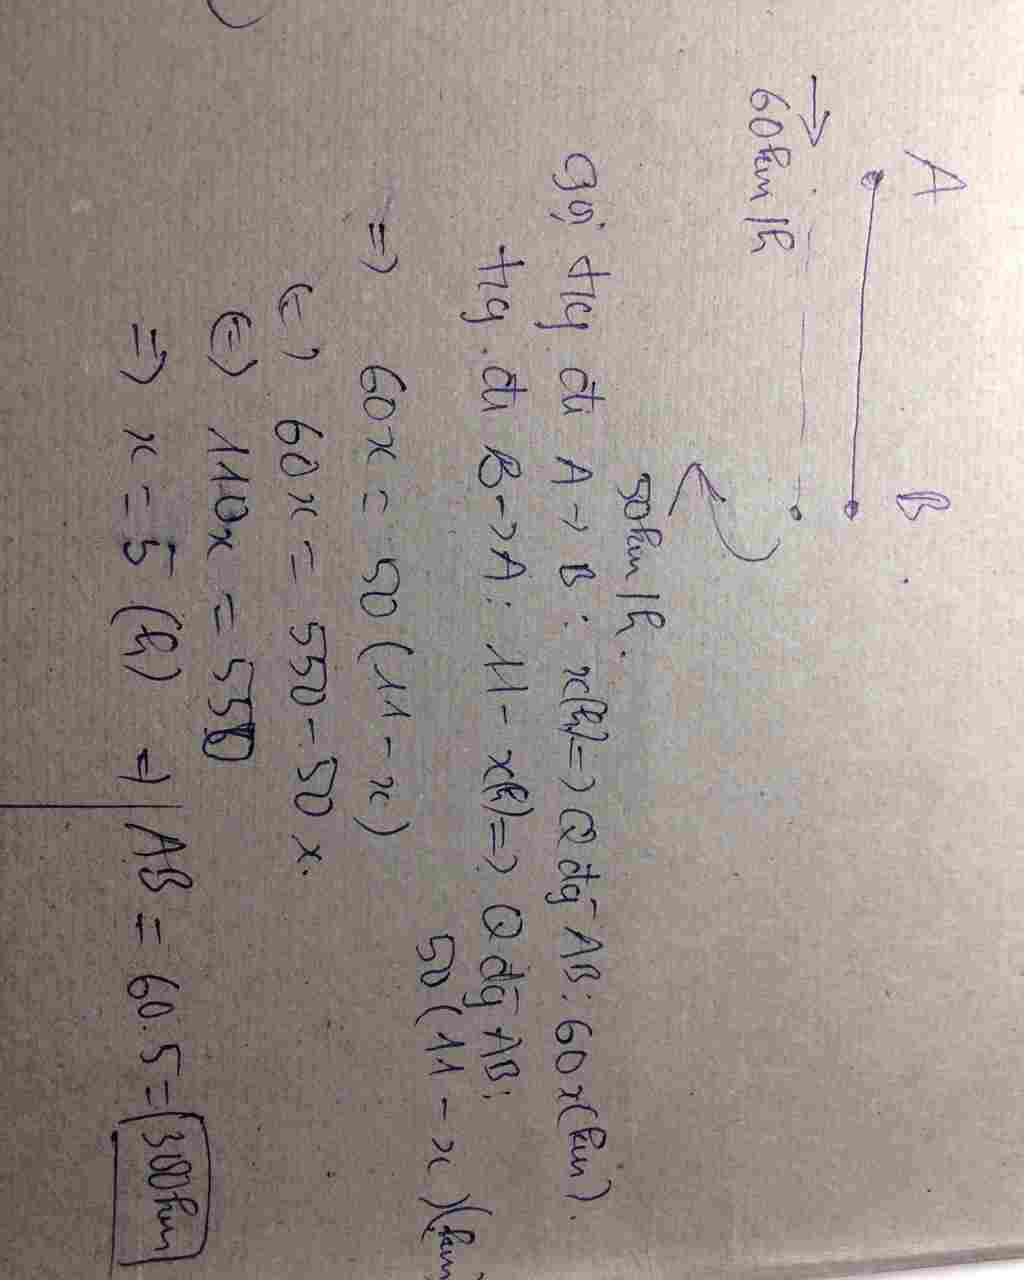 A B
60km/h
50km/h.
Gọi tig đi A -> B : x(h) => Q đg AB : 60x (km).
tig đi B -> A : 11 - x(h) => Q đg AB :
50 (11 - x) (km)
=> 60x = 50 (11 - x)
(=) 60x = 550 - 50x.
(=) 110x = 550
=> x = 5 (h) => AB = 60.5 = 300km